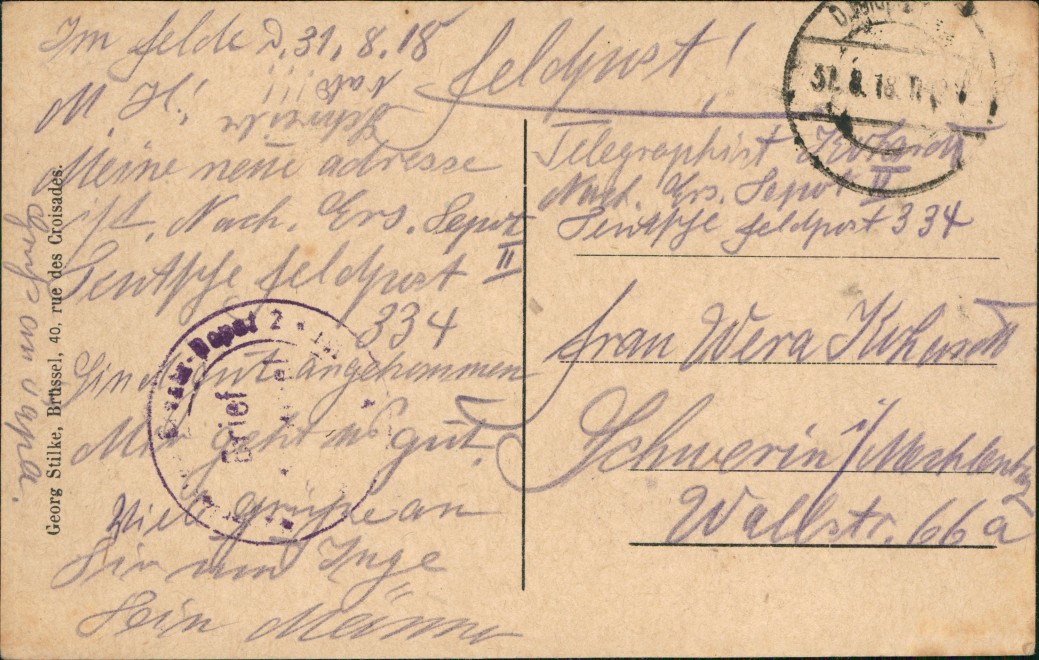 Im Felde D. 31. 8. 18
M. H.!
Schreibe
bald !!!
Meine neue adresse
ist, Nach. Ers. Depot
II
Deutsche Feldpost
334
Sind gut angekommen
Mir geht es gut.
Viele grüße an
Dir und Inge
Dein Männe
Gruß an Papa.
Georg Stilke, Brüssel, 40, rue des Croisades.
Feldpost!
31.8.18.
Telegraphist
Nach. Ers. Depot II
Deutsche Feldpost 334
Frau Wera
Schwerin i/Mecklenbg
Wallstr. 66a
Depot 2
Brief